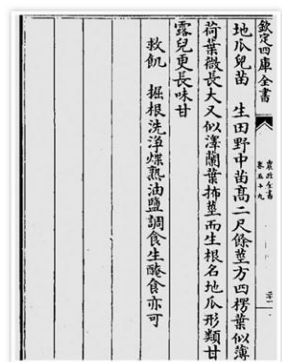 欽定四庫全書
農政全書
卷五十九
地瓜兒苗 生田野中苗高二尺餘莖方四楞葉似薄
荷葉微長大又似澤蘭葉抪莖而生根名地瓜形類甘
露兒更長味甘
救飢 掘根洗淨煠熟油鹽調食生醃食亦可